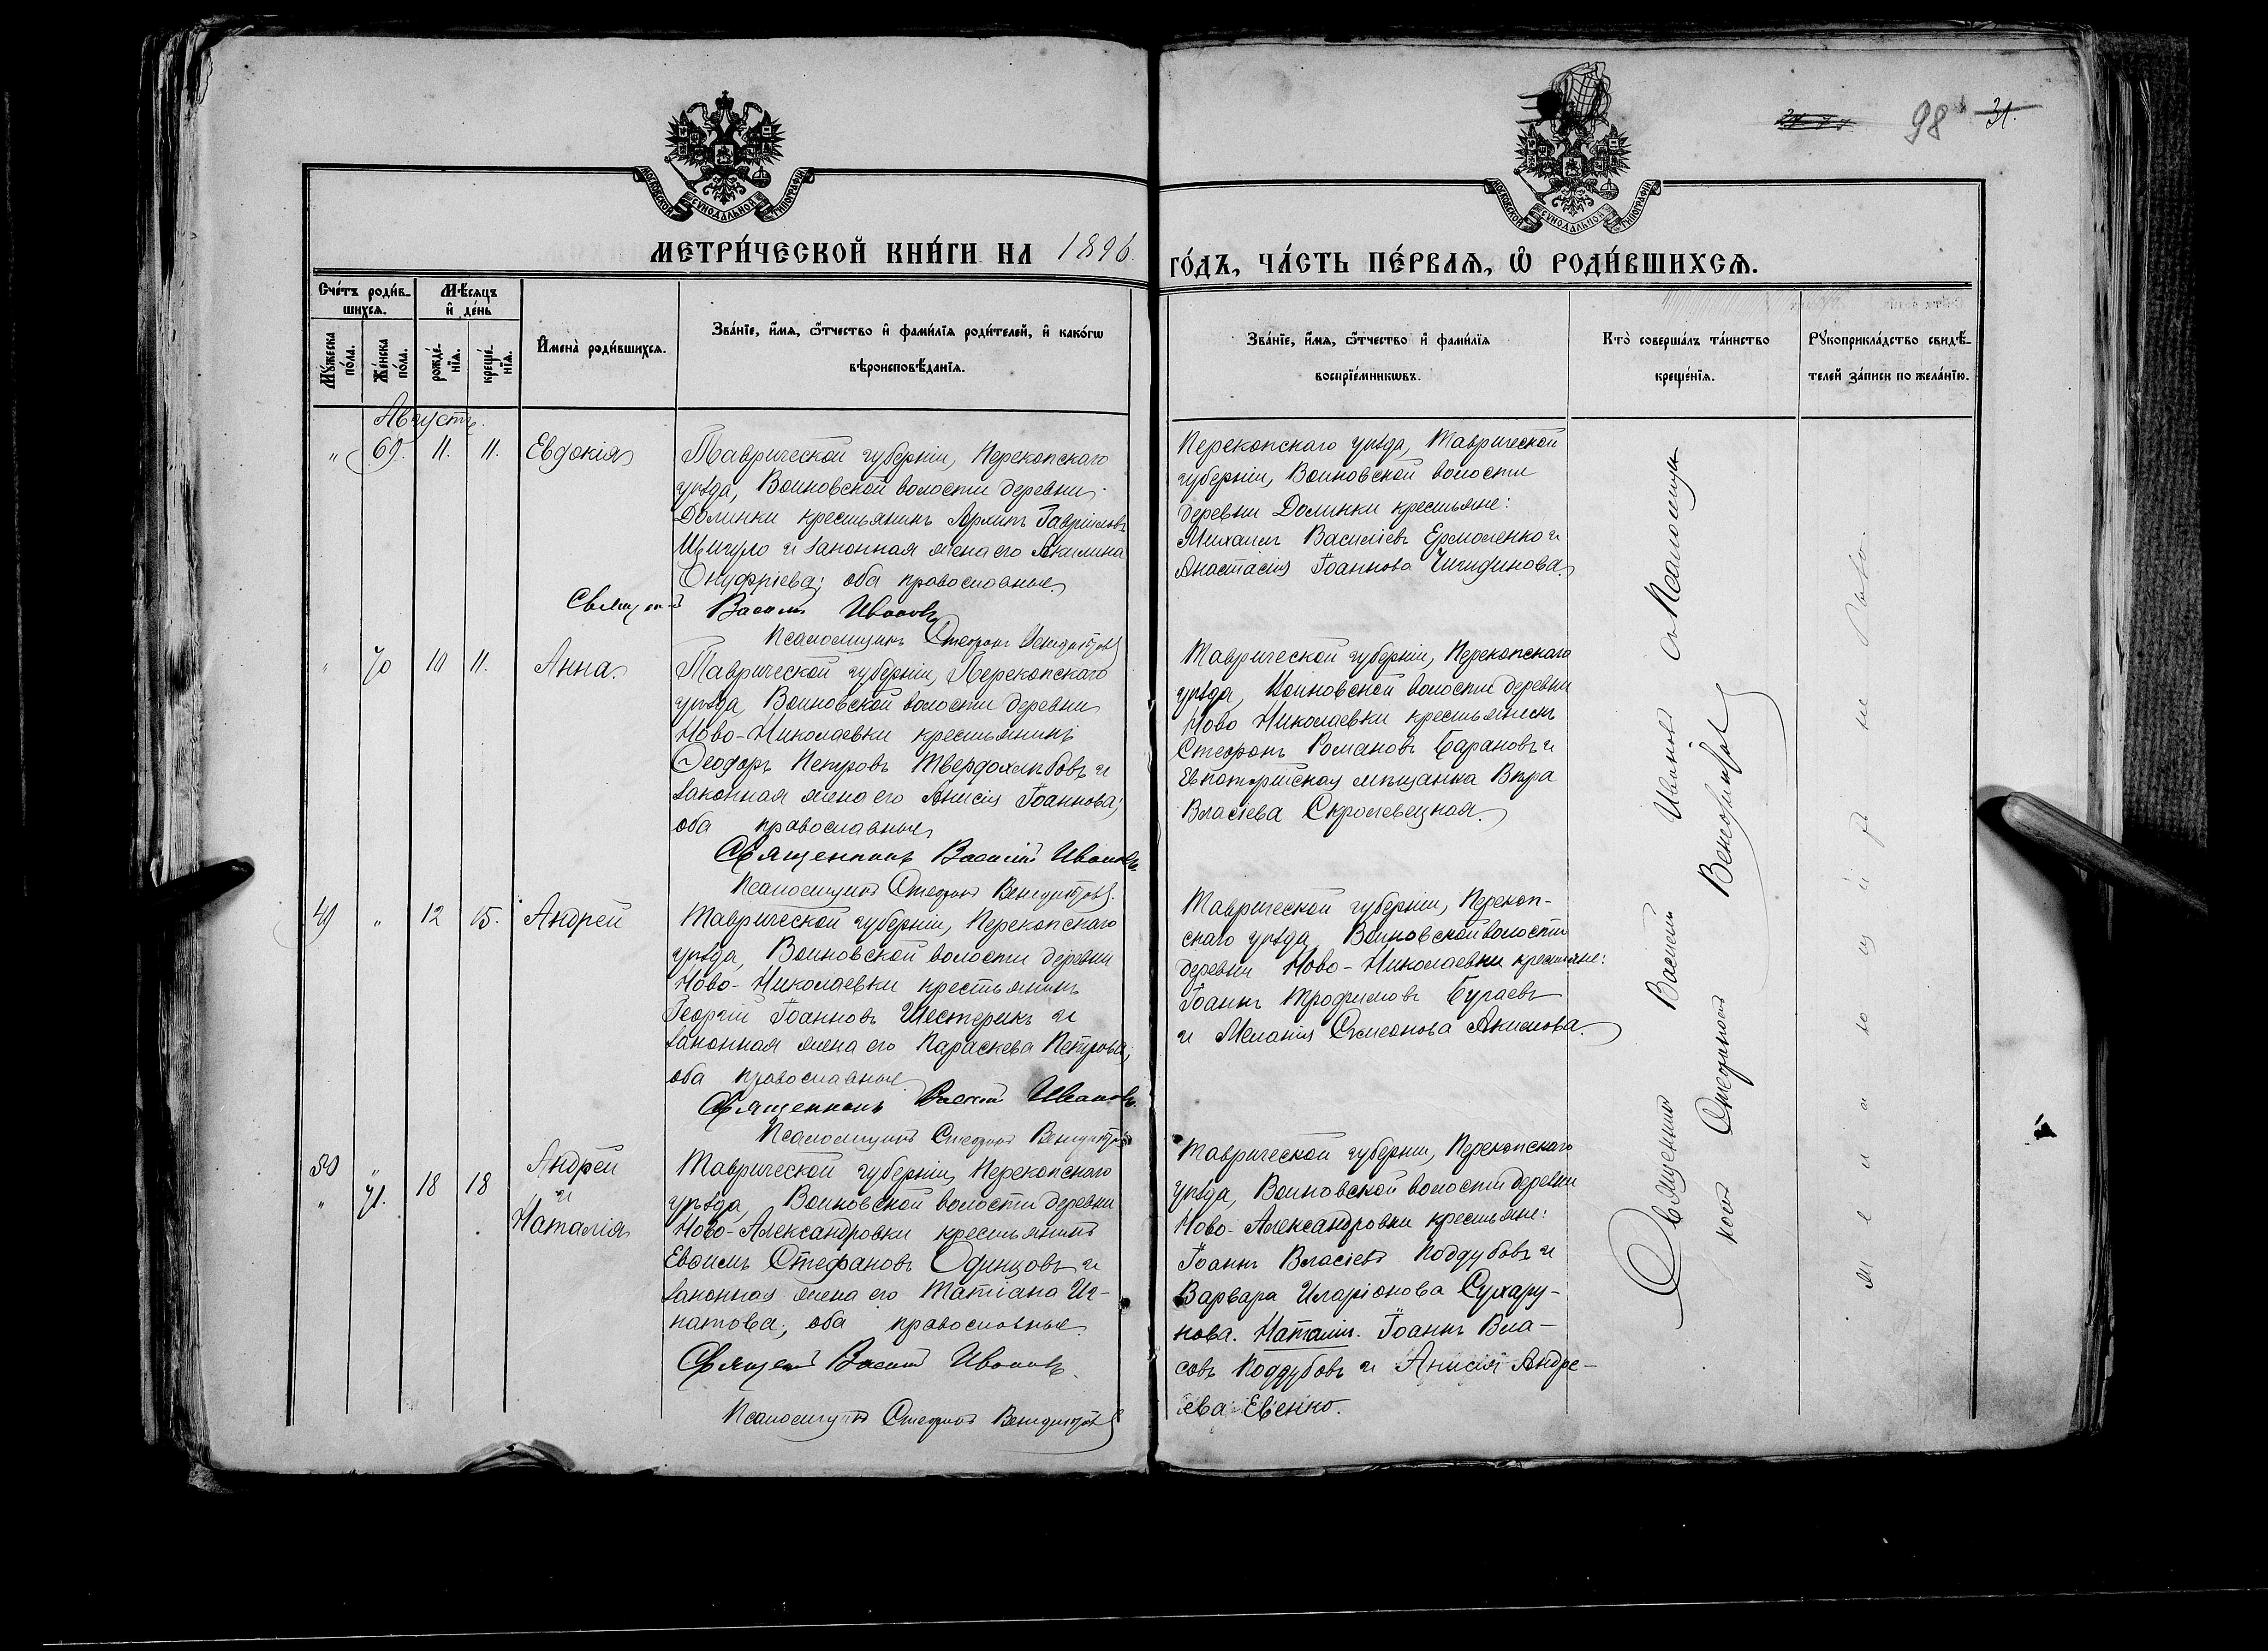 98 31.
МОСКОВСКОЙ СѴНОДАЛЬНОЙ ТИПОГРАФІИ
МОСКОВСКОЙ СѴНОДАЛЬНОЙ ТИПОГРАФІИ
МЕТРИ́ЧЕСКОЙ КНИ́ГИ НА 1896. ГО́ДЪ, ЧА́СТЬ ПЕ́РВАѦ, Ѽ РОДИ́ВШИХСѦ.
Сче́тъ роди́в-
шихсѧ.
Мѣ́сѧцъ
и҆ де́нь
Мꙋ́жеска
по́ла.
Же́нска
по́ла.
рожде́-
нїѧ.
креще́-
нїѧ.
И҆мена̀ роди́вшихсѧ.
Зва́нїе, и҆́мѧ, ѻ҆́тчество и҆ фами́лїѧ роди́телей, и҆ како́гѡ
вѣроисповѣ́данїѧ.
Зва́нїе, и҆́мѧ, ѻ҆́тчество и҆ фами́лїѧ
воспрїе́мникѡвъ.
Кто̀ соверша́лъ та́инство
креще́нїѧ.
Рꙋкоприкла́дство свидѣ́-
телей за́писи по жела́нїю.
Августъ.
" 69. 11. 11. Евдокія
Таврической губерніи, Перекопскаго
уѣзда, Воиновской волости деревни
Долинки крестьянинъ Гавріиловъ
и законная жена его Акилина
Онуфріева; оба православные
Священ-й Василій Ивановъ
Псаломщикъ Стефанъ Венедиктовъ
Перекопскаго уѣзда, Таврической
губерніи, Воиновской волости
деревни Долинки крестьяне:
Михаилъ Василіевъ Ермоленко и
Анастасія Іоаннова
" 70 10 11. Анна.
Таврической губерніи, Перекопскаго
уѣзда, Воиновской волости деревни
Ново-Николаевки крестьянинъ
Ѳеодоръ Петровъ Твердохлѣбовъ и
законная жена его Анисія Іоаннова;
оба православные
Священникъ Василій Ивановъ
Псаломщикъ Стефанъ Венедиктовъ.
Таврической губерніи, Перекопскаго
уѣзда, Воиновской волости деревни
Ново Николаевки крестьянинъ
Стефанъ Романовъ Барановъ и
Евпаторійская мѣщанка Вѣра
Власіева
49 " 12 15. Андрей
Таврической губерніи, Перекопскаго
уѣзда, Воиновской волости деревни
Ново-Николаевки крестьянинъ
Георгій Іоанновъ Шестерикъ и
законная жена его Параскева Петрова;
оба православные
Священникъ Василій Ивановъ.
Псаломщикъ Стефанъ Венедиктовъ
Таврической губерніи, Перекоп-
скаго уѣзда, Воиновской волости
деревни Ново-Николаевки крестьяне:
Іоаннъ Трофимовъ Бугаевъ
и Меланія Симеонова Акимова.
50 " 18 18 Андрей
" 71. и
Наталія
Таврической губерніи, Перекопскаго
уѣзда, Воиновской волости деревни
Ново-Александровки крестьянинъ
Евѳимъ Стефановъ Одинцовъ и
законная жена его Татіана Иг-
натова; оба православные.
Священ Василій Ивановъ.
Псаломщикъ Стефанъ Венедиктовъ
Таврической губерніи, Перекопскаго
уѣзда, Воиновской волости деревни
Ново-Александровки крестьяне:
Іоаннъ Власіевъ Поддубовъ и
Варвара Иларіонова Сухару-
кова. Наталіи. Іоаннъ Вла-
совъ Поддубовъ и Анисія Андре-
ева Евсенко.
Священникъ Василій Ивановъ съ Псаломщи-
комъ Стефаномъ Венедиктов
желающихъ не было.